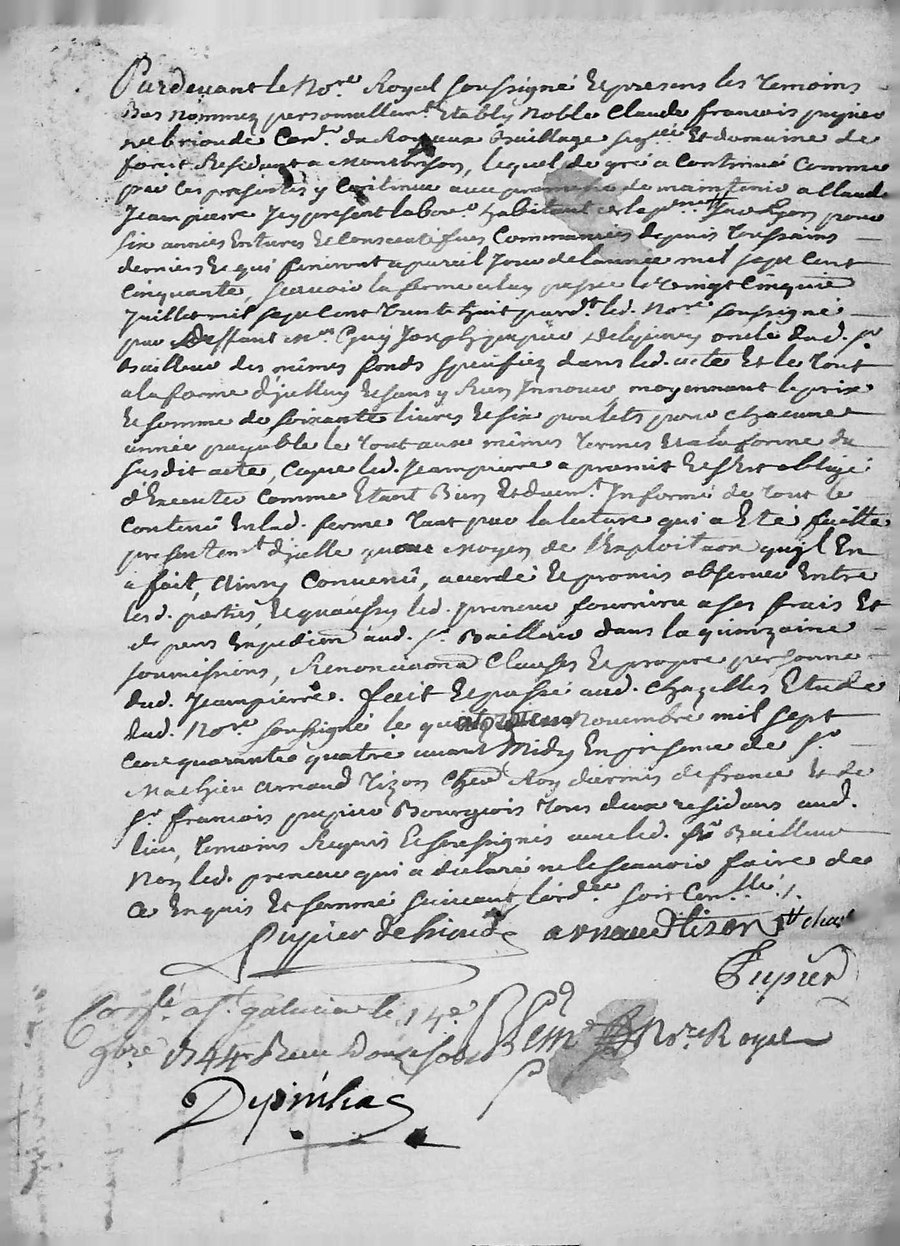 Pardevant le No.re Royal soussigné Et presens les Temoins
Bas Nommez personnellem.t Etably Noble Claude françois pupier
de brioude Con.er du Roy aux Baillage Et domaine de
forest Résidant a Montbrison, lequel de gré a Continué Comme
par Ces presentes y Continue avec promesse de maintenir a Claude
Jeanpierre Icy present labor.r habitant
six années Entieres Et Consecutifves Commancées depuis Toussains
derniers Et qui finiront a pareil Jour de lannée mil sept Cent
Cinquante, scavoir la ferme a luy passée le Vingt Cinquie
Juillet mil sept Cent Trente huit pard.t led. No.re soussigné
par deffunt m.re Guy Joseph pupier oncle dud. s.r
Bailleur des mêmes fonds specifiez dans led. acte Et le Tout
a la forme d'jcelluy Et sans y Rien Innover moyennant le prix
Et somme de soixante livres Et six poulets pour Chacune
année payable le Tout aux mêmes Termes Et a la forme du
susdit acte, Ce que led. Jeanpierre a promit Et s'Est obligé
d'Executer Comme Etant Bien Et duem.t Informé de Tout le
Contenû En lad. ferme Tant par la lecture qui a Eté faitte
presentem.t d'jcelle qu'au moyen de l'Exploitaon qu'jl En
a fait, Ainsy Convenû, accordé Et promis observer Entre
les d. parties, Et qu'aussy led. preneur fournira a ses frais Et
Expedition aud. s.r Bailleur dans la quinzaine
soumissions, Renonciaons Clauses Et propre personne
dud. Jeanpierre. fait Et passé aud. Chazelles Etude
dud. No.re soussigné le Novembre mil sept
Cent quarante quatre avant Midy En présence de s.r
Mathieu Arnaud Tizon Cher Roy d'armes de france Et de
s.r françois pupier Bourgeois Tous deux residans aud.
lieu, Temoins Requis Et soussignés avec led. s.r Bailleur
Non led. preneur qui a declaré ne le scavoir faire de
Ce Enquis Et sommé suivant l'ord.ce soit Con.llé ./.
Pupier de brioude arnaud tizon
Pupier
Con.llé a s.t galmier le 14e
9bre 1744 Receu Douze sols No.re Royal